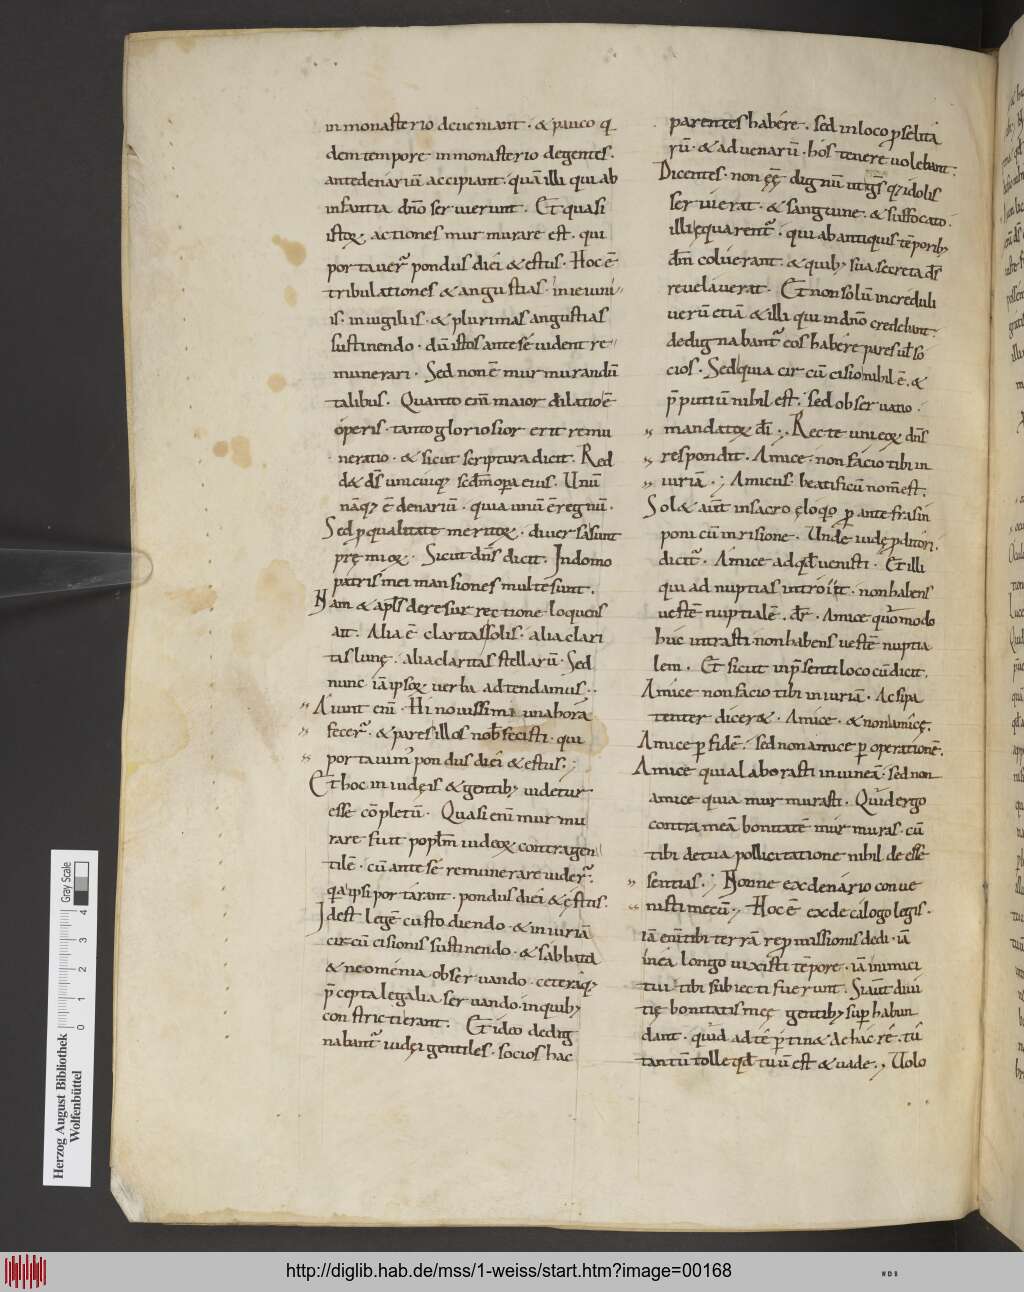 in monasterio deveniant · & pauco q
dem tempore in monasterio degentes ·
ante denariū accipiant · quā illi qui ab
infantia dn̄o servierunt · Et quasi
istoꝝ actiones murmurare est · qui
portaverˀ pondus diei & estus · Hoc ē
tribulationes & angustias · in ieiuni
is · in vigiliis · & plurimas angustias
sustinendo · dū istos ante sé vident re
munerari · Sed non ē murmurandū
talibus · Quanto em̄ maior dilatio ē
óperis · tanto gloriosior erit remu
neratio · & sicut scriptura dicit · Red
d& d̄s unicuiqꝫ sedm̄ opera eius · Unū
nāqꝫ ē denariū · quia unū ē regnū ·
Sed ꝑ qualitate meritoꝝ · diversa sunt
pręmioꝝ · Sicut dn̄s dicit · In domo
patris mei mansiones multę sunt ·
Nam & apl̄s de resurrectione loquens
ait · Alia ē claritas solis · alia clari
tas lunę · alia claritas stellarū · Sed
nunc iā ipsoꝝ verba adtendamus ··
Aiunt em̄ · Hi novissimi una hora
fecerˀ · & pares illos nob̄ fecisti · qui
portavimˀ pondus diei & estus ·;
Et hoc in iudęis & gentibꝫ videtur
esse cōpletū · Quasi em̄ murmu
rare fuit popl̄m iudeoꝝ contra gen
tilē · cū ante sé remunerare viderˀ ·
qa ipsi portarant · pondus diei & ęstus ·
Id est legē custodiendo · & in iuriā
circūcisionis sustinendo · & sabbata
& neomenia observando · ceteraqꝫ
p̄cepta legalia servando · in quibꝫ
constricti erant · Et ideo dedig
nabantˀ iudęi gentiles · socios hac
parentes habére · sed in loco ꝓselita
rū · & advenarū · hos tenere volebant ·
Dicentes · non ęę dignū ut gēs qꝫ idolis
servierat · & sanguine · & suffocato ·
illi ęquarentˀ · qui ab antiquis tēporibꝫ
dm̄ coluerant · & quibꝫ sua secreta d̄s
revelaverat · Et non solū increduli
verū etiā & illi qui in dn̄o credebant ·
dedignabantˀ eos habére pares vl̄ so
cios · Sed quia circūcisio nihil ē · &
p̄putiū nihil est · sed observatio ·
mandatoꝝ dī ·, Recte uni eoꝝ dn̄s
respondit · Amice · non facio tibi in
iuriā ·; Amicus · beatificū nom̄ est ·
Sol& aūt in sacro ęloqo ꝑ antefrasin
poni cū inrisione · Unde iudę ꝓditori ·
dicitˀ · Amice ad qd̄ venisti · Et illi
qui ad nuptias introiit · non habens
vestē nuptialē · dr̄ · Amice quomodo
huc intrasti non habens vestē nuptia
lem · Et sicut in p̄senti loco cū dicit ·
Amice non facio tibi iniuriā · Ac si pa
tenter dicer& · Amice · & non amicę ·
Amice ꝑ fidē · sed non amice ꝑ operationē ·
Amice quia laborasti in vinea · sed non
amice quia murmurasti · Quid ergo
contra meā bonitatē murmuras · cū
tibi de tua pollicitatione nihil deesse
sentias ·; Nonne ex denário conve
nisti mecū ·, Hoc ē ex decálogo legis ·
iā em̄ tibi terrā repmissionis dedi · iā
in ea longo vixisti tēpore · iā inimici
tui · tibi subiecti fuerunt · Si aūt divi
tię bonitatis męę gentibꝫ suꝑhabun
dant · quid ad té ꝑtin& Ac hác ré · tū
tantū tolle qd̄ tuū est & vade ·, Volo
Herzog August Bibliothek
Wolfenbüttel
Gray Scale
0 1 2 3 4
http://diglib.hab.de/mss/1-weiss/start.htm?image=00168